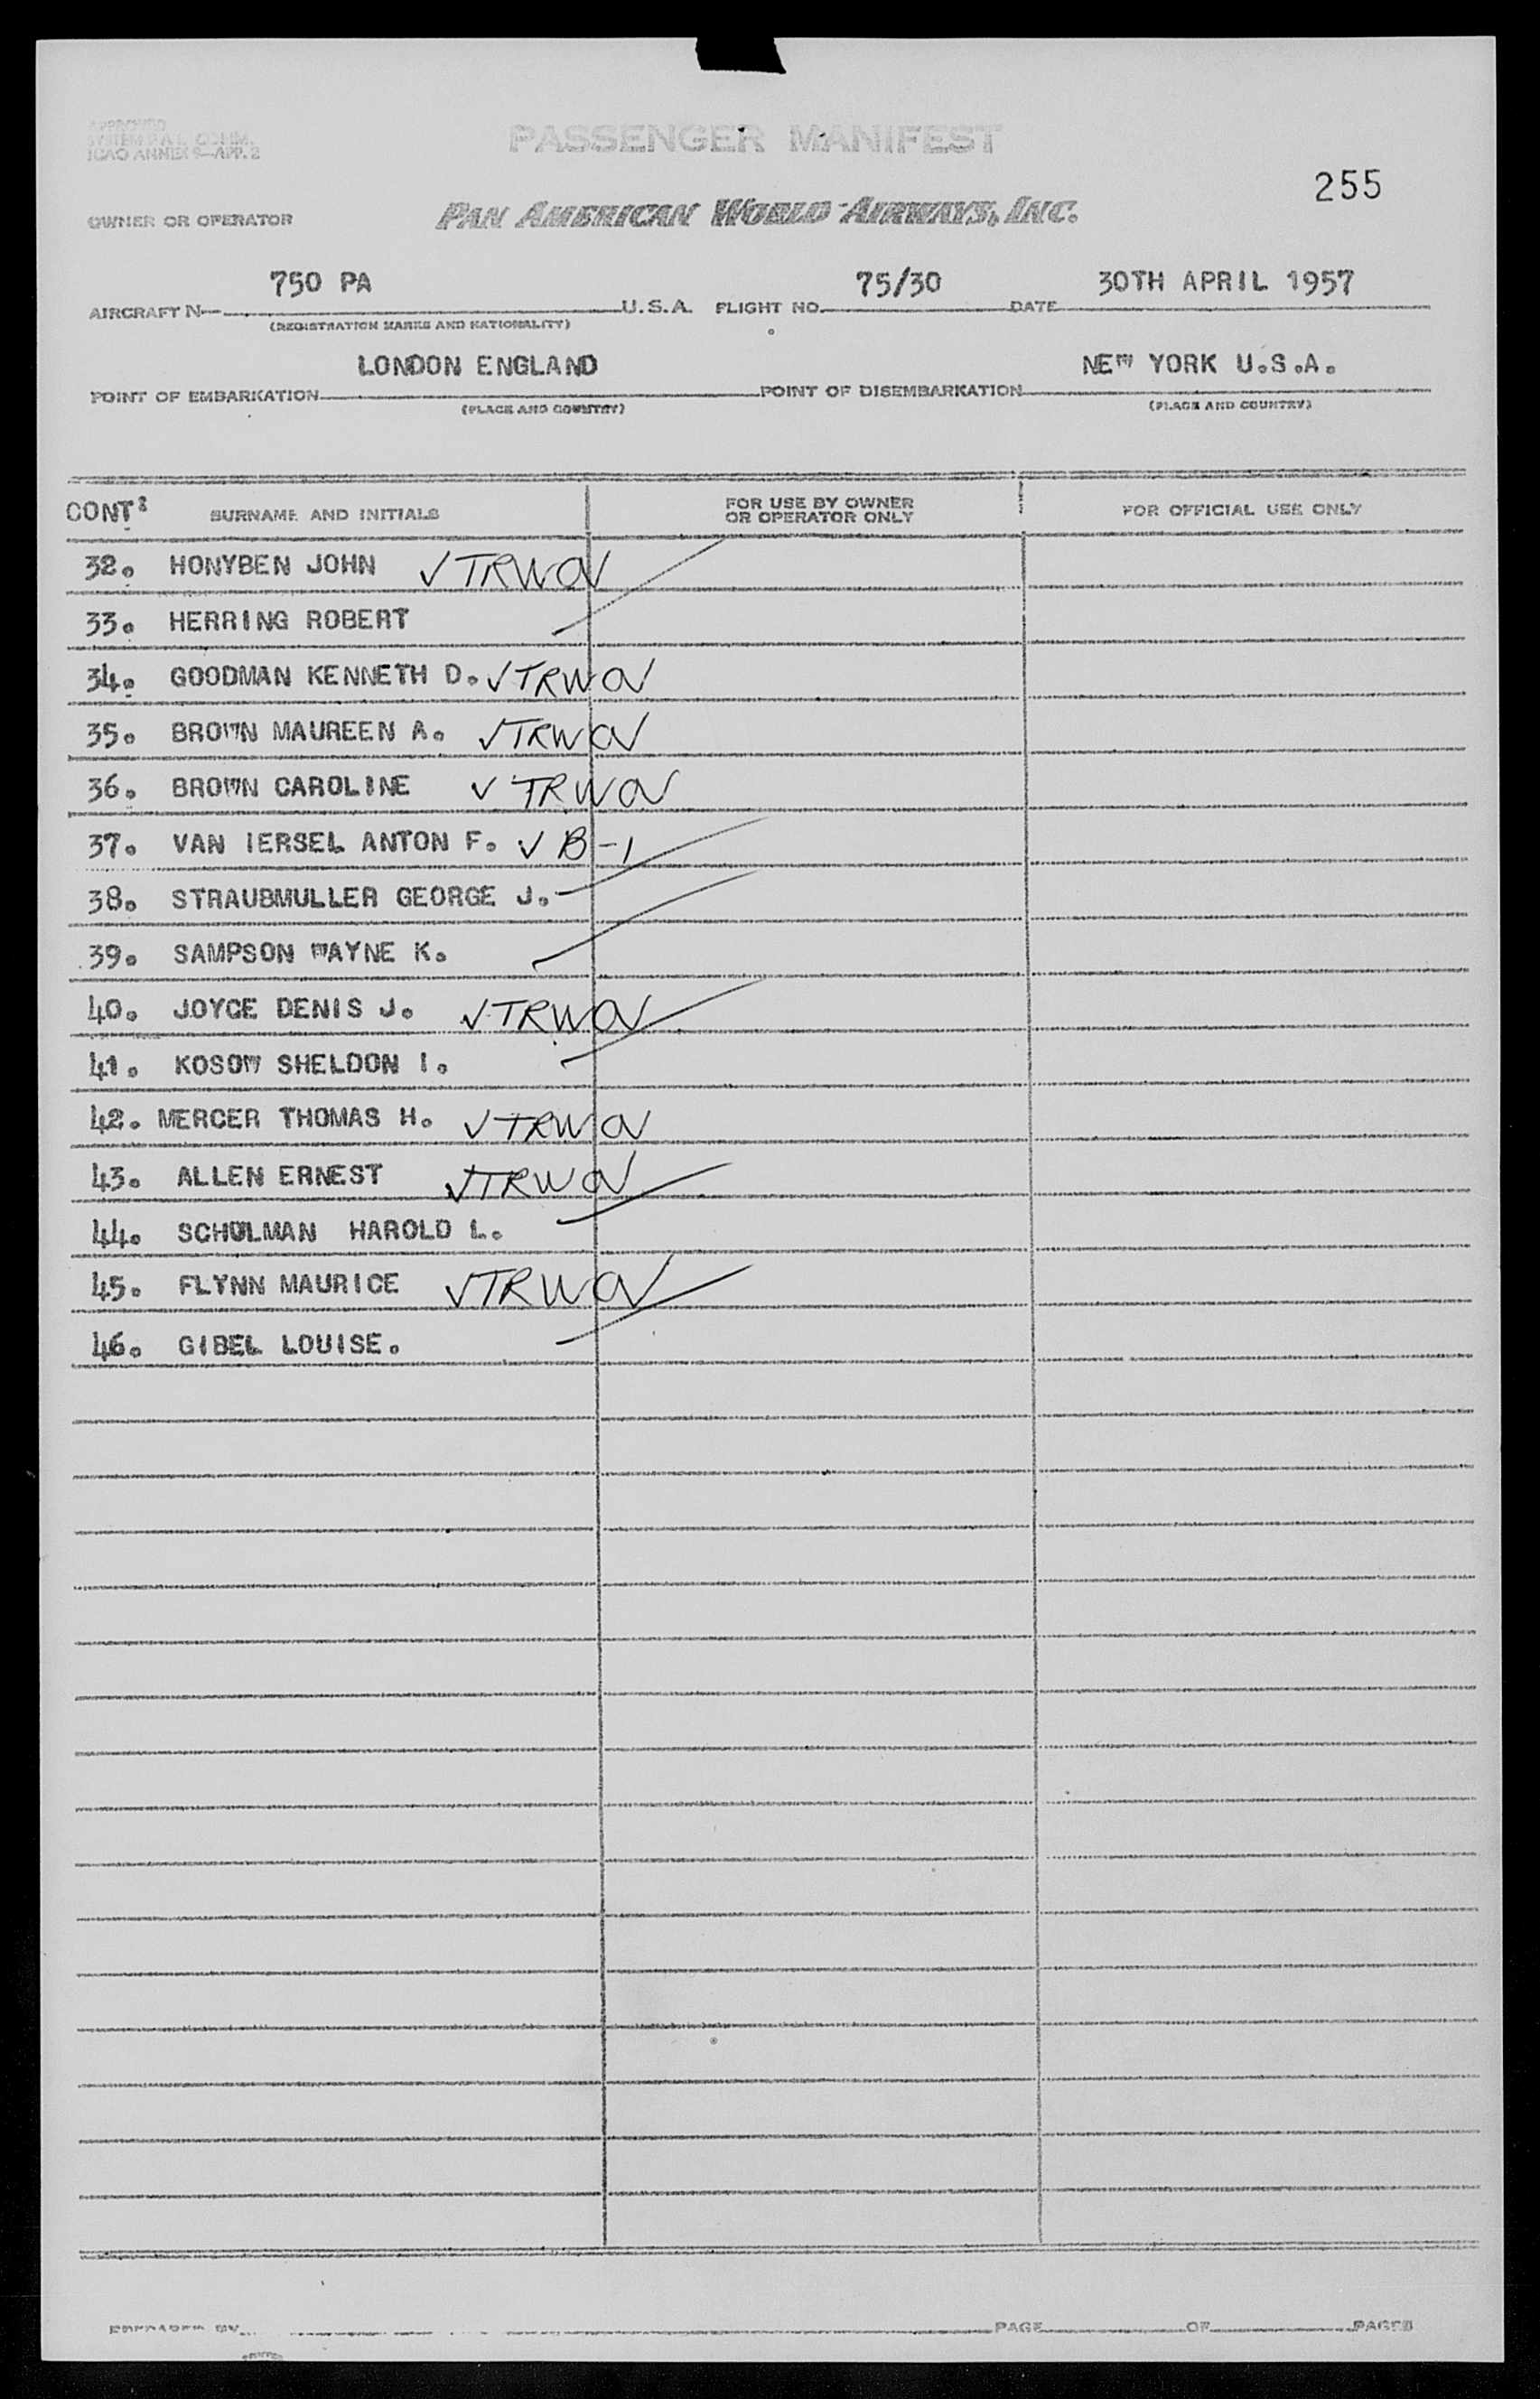 APPROVED
ICAO ANNEX 9—APP. 2
PASSENGER MANIFEST
255
OWNER OR OPERATOR
PAN AMERICAN WORLD AIRWAYS, INC.
AIRCRAFT N 750 PA U.S.A. FLIGHT NO. 75/30 DATE 30TH APRIL 1957
(REGISTRATION MARKS AND NATIONALITY)
POINT OF EMBARKATION LONDON ENGLAND POINT OF DISEMBARKATION NEW YORK U.S.A.
(PLACE AND COUNTRY) (PLACE AND COUNTRY)
CONT: SURNAME AND INITIALS FOR USE BY OWNER OR OPERATOR ONLY FOR OFFICIAL USE ONLY
32. HONYBEN JOHN ✓ TRWOV
33. HERRING ROBERT
34. GOODMAN KENNETH D. ✓ TRWOV
35. BROWN MAUREEN A. ✓ TRWOV
36. BROWN CAROLINE ✓ TRWOV
37. VAN IERSEL ANTON F. ✓ B-1
38. STRAUBMULLER GEORGE J.
39. SAMPSON WAYNE K.
40. JOYCE DENIS J. ✓ TRWOV
41. KOSOW SHELDON I.
42. MERCER THOMAS H. ✓ TRWOV
43. ALLEN ERNEST ✓ TRWOV
44. SCHULMAN HAROLD L.
45. FLYNN MAURICE ✓ TRWOV
46. GIBEL LOUISE.
PREPARED BY PAGE OF PAGES